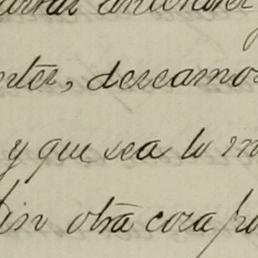 anteriores
ntes, deseamos
y que sea lo m
Sin otra cosa po